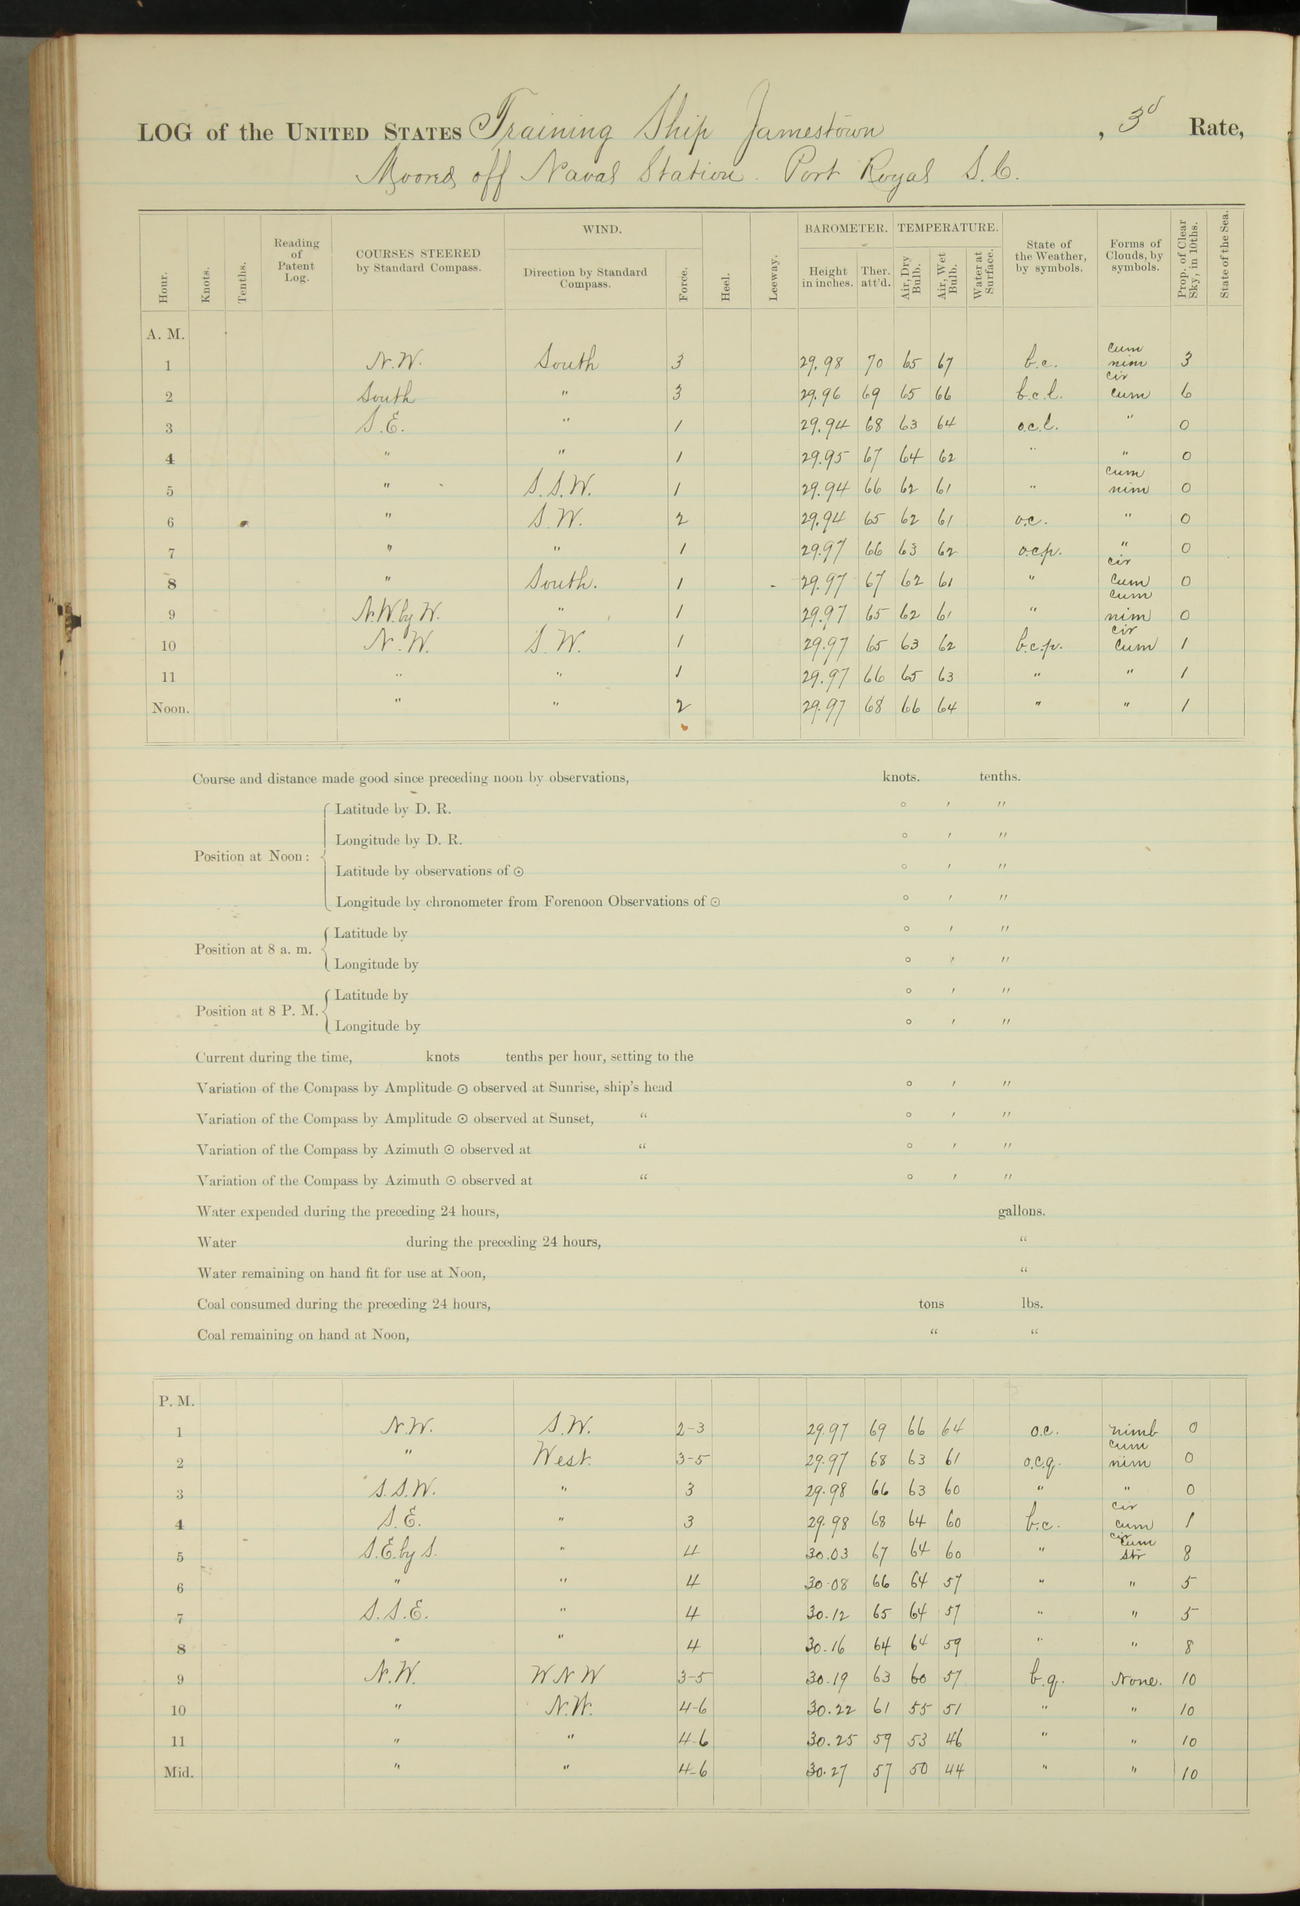 LOG of the UNITED STATES Training Ship Jamestown, 3d Rate,
Moored off Naval Station. Port Royal S.C.
Hour. Knots. Tenths. Reading of Patent Log. COURSES STEERED by Standard Compass. WIND. Direction by Standard Compass. Force. Heel. Leeway. BAROMETER. Height in inches. Ther. att'd. TEMPERATURE. Air, Dry Bulb. Air, Wet Bulb. Water at Surface. State of the Weather, by symbols. Forms of Clouds, by symbols. Prop. of Clear Sky, in 10ths. State of the Sea.
A. M.
1 N.W. South 3 29.98 70 65 67 b.c. cum nim 3
2 South " 3 29.96 69 65 66 b.c.l. cir cum 6
3 S.E. " 1 29.94 68 63 64 o.c.l. " 0
4 " " 1 29.95 67 64 62 " " 0
5 " S.S.W. 1 29.94 66 62 61 " cum nim 0
6 " S.W. 2 29.94 65 62 61 o.c. " 0
7 " " 1 29.97 66 63 62 o.c.p. " 0
8 " South. 1 29.97 67 62 61 " cir cum 0
9 N.W. by W. " 1 29.97 65 62 61 " cum nim 0
10 N.W. S.W. 1 29.97 65 63 62 b.c.p. cir cum 1
11 " " 1 29.97 66 65 63 " " 1
Noon. " " 2 29.97 68 66 64 " " 1
Course and distance made good since preceding noon by observations, knots. tenths.
Position at Noon: Latitude by D. R. ° ′ ″
Longitude by D. R. ° ′ ″
Latitude by observations of ⊙ ° ′ ″
Longitude by chronometer from Forenoon Observations of ⊙ ° ′ ″
Position at 8 a. m. Latitude by ° ′ ″
Longitude by ° ′ ″
Position at 8 P. M. Latitude by ° ′ ″
Longitude by ° ′ ″
Current during the time, knots tenths per hour, setting to the
Variation of the Compass by Amplitude ⊙ observed at Sunrise, ship's head ° ′ ″
Variation of the Compass by Amplitude ⊙ observed at Sunset, " ° ′ ″
Variation of the Compass by Azimuth ⊙ observed at " ° ′ ″
Variation of the Compass by Azimuth ⊙ observed at " ° ′ ″
Water expended during the preceding 24 hours, gallons.
Water during the preceding 24 hours, "
Water remaining on hand fit for use at Noon, "
Coal consumed during the preceding 24 hours, tons lbs.
Coal remaining on hand at Noon, " "
P. M.
1 N.W. S.W. 2-3 29.97 69 66 64 o.c. nimb 0
2 " West. 3-5 29.97 68 63 61 o.c.q. cum nim 0
3 S.S.W. " 3 29.98 66 63 60 " " 0
4 S.E. " 3 29.98 68 64 60 b.c. cir cum 1
5 S.E. by S. " 4 30.03 67 64 60 " cir cum str 8
6 " " 4 30.08 66 64 57 " " 5
7 S.S.E. " 4 30.12 65 64 57 " " 5
8 " " 4 30.16 64 64 59 " " 8
9 N.W. WNW 3-5 30.19 63 60 57 b.q. None. 10
10 " N.W. 4-6 30.22 61 55 51 " " 10
11 " " 4-6 30.25 59 53 46 " " 10
Mid. " " 4-6 30.27 57 50 44 " " 10